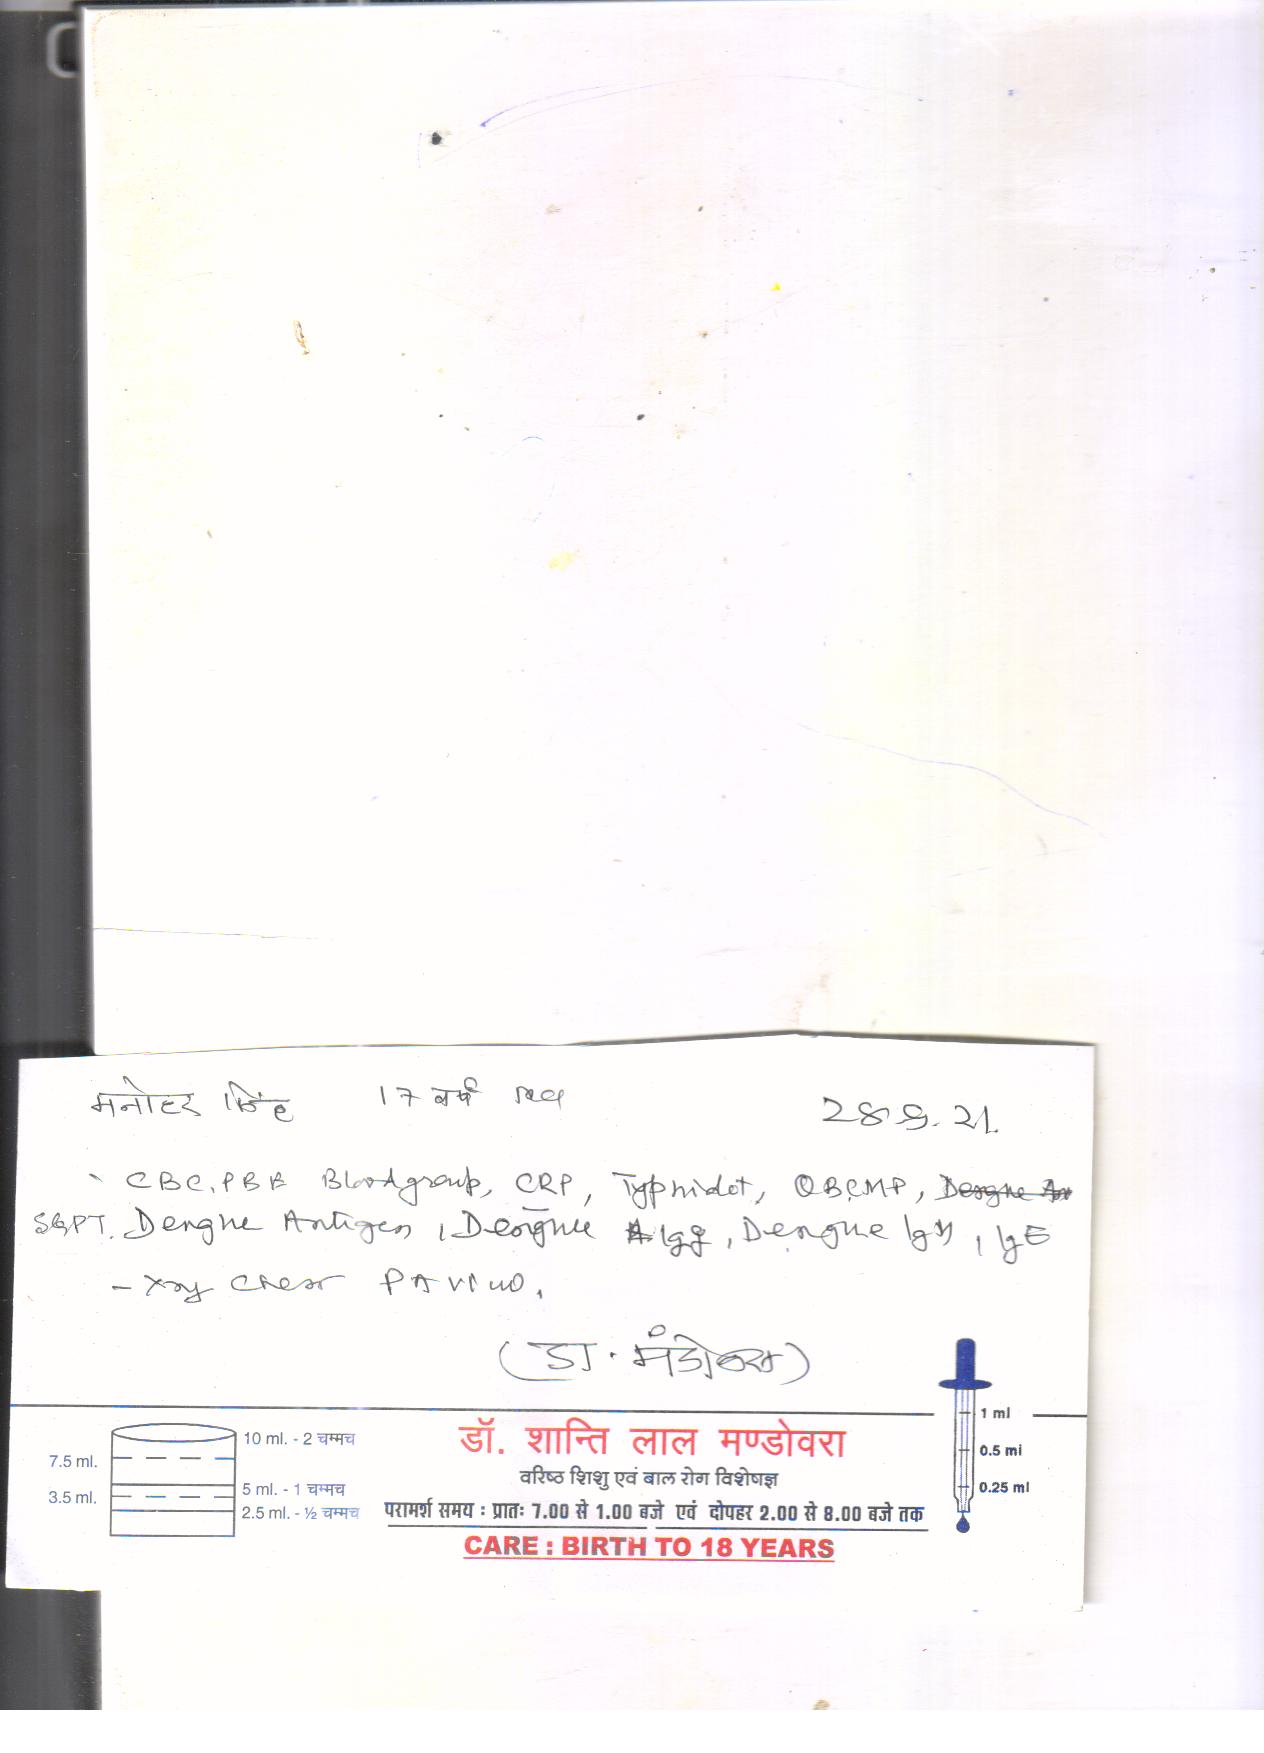 मनोहर सिंह 17 वर्ष 28.9.21
CBC, PBF Bloodgroup, CRP, Typhidot, QBCMP, Dengue An
SGPT. Dengue Antigen, Dengue IgG, Dengue IgM, IgE
- Xray Chest PA View.
(डा. मंडोवरा)
10 ml. - 2 चम्मच
7.5 ml.
5 ml. - 1 चम्मच
3.5 ml.
2.5 ml. - ½ चम्मच
डॉ. शान्ति लाल मण्डोवरा
वरिष्ठ शिशु एवं बाल रोग विशेषज्ञ
परामर्श समय : प्रातः 7.00 से 1.00 बजे एवं दोपहर 2.00 से 8.00 बजे तक
CARE : BIRTH TO 18 YEARS
1 ml
0.5 ml
0.25 ml